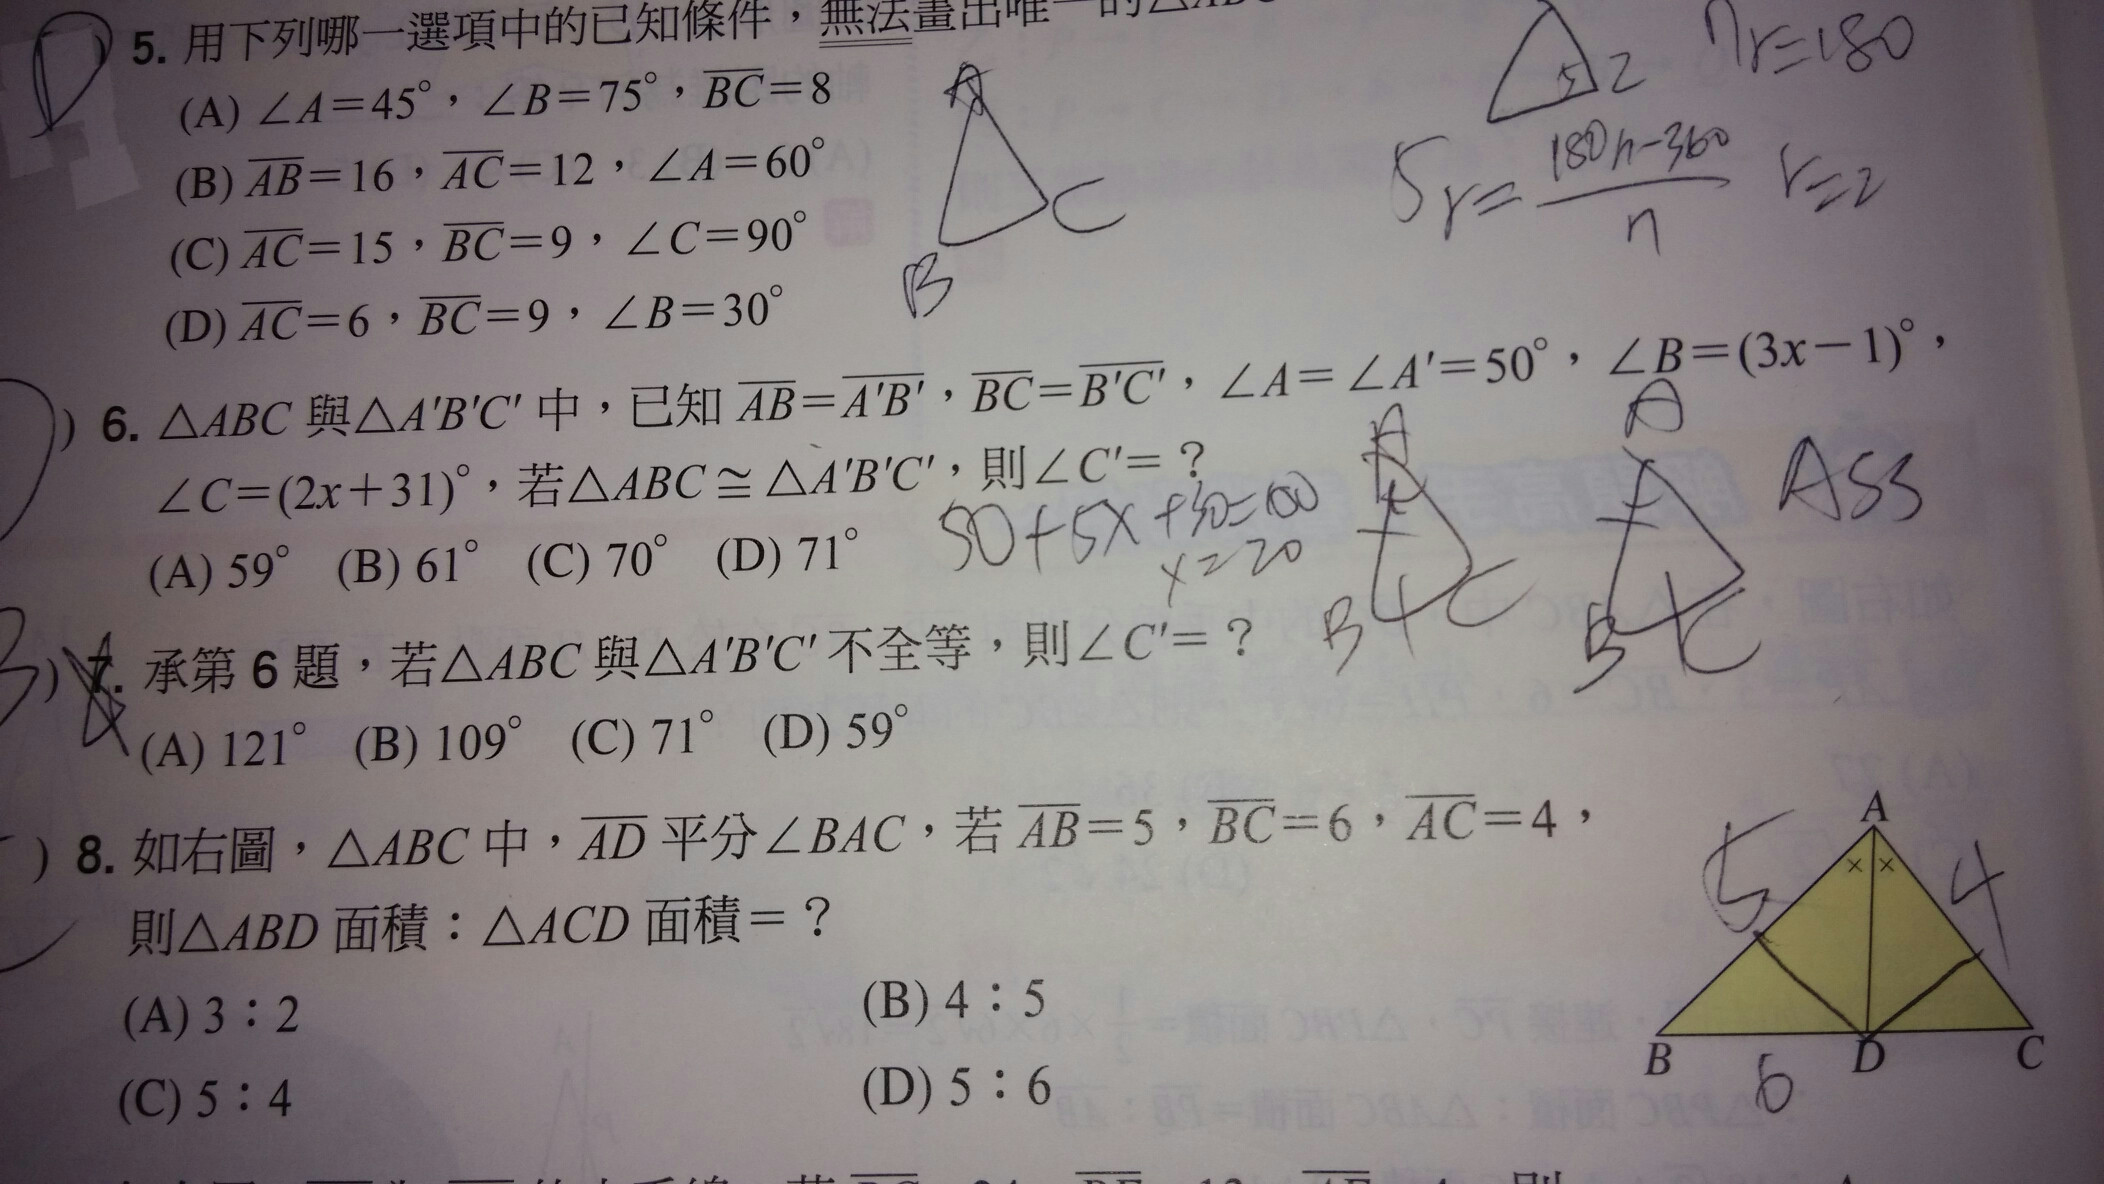 5. 用下列哪一選項中的已知條件，無法畫出唯一的△ABC
(A) ∠A=45°，∠B=75°，BC=8
(B) AB=16，AC=12，∠A=60°
(C) AC=15，BC=9，∠C=90°
(D) AC=6，BC=9，∠B=30°
A
B
C
5 2
nr=180
5r= 180n-360 / n r=2
) 6. △ABC 與△A'B'C' 中，已知 AB=A'B'，BC=B'C'，∠A=∠A'=50°，∠B=(3x-1)°，
∠C=(2x+31)°，若△ABC≅△A'B'C'，則∠C'=？
(A) 59° (B) 61° (C) 70° (D) 71°
50+5x+30=180
x=20
A
B
C
A
B
C
ASS
) 7. 承第 6 題，若△ABC 與△A'B'C' 不全等，則∠C'=？
(A) 121° (B) 109° (C) 71° (D) 59°
) 8. 如右圖，△ABC 中，AD 平分∠BAC，若 AB=5，BC=6，AC=4，
則△ABD 面積：△ACD 面積=？
(A) 3：2 (B) 4：5
(C) 5：4 (D) 5：6
A
5 4
B D C
6